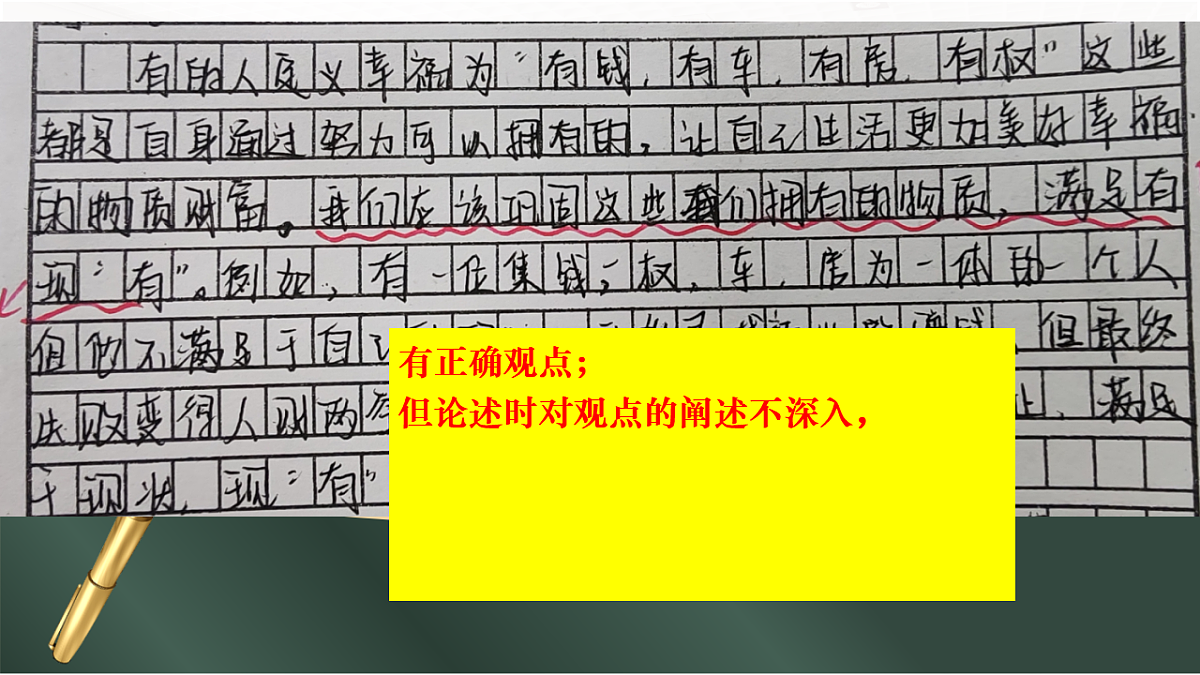 有的人定义幸福为“有钱,有车,有房,有权”这些
都是自身通过努力可以拥有的,让自己生活更加美好幸福
的物质财富。我们应该巩固这些我们拥有的物质,满足有
现“有”。例如,有一位集钱,权,车,房为一体的一个人
但他不满足于自己 但最终
失败变得人财两 满足
于现状,现“有”
有正确观点;
但论述时对观点的阐述不深入,